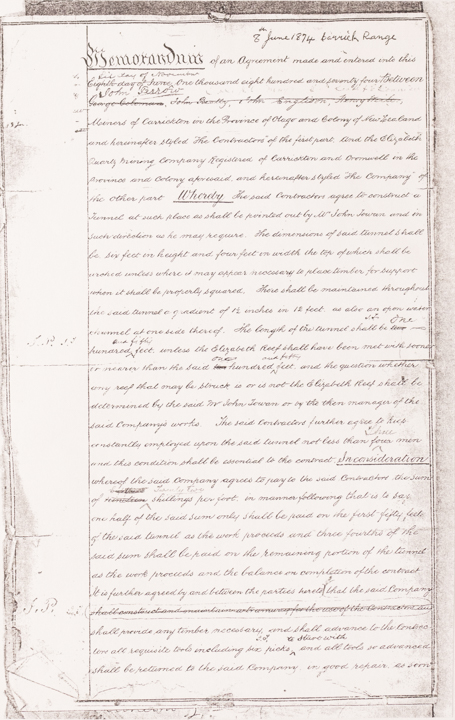 8th June 1874 Carrick Range
Memorandum of an Agreement made and entered into this
Eighth day of June One thousand eight hundred and seventy four Between
John Perrow
John Beatty, John Englison,
Miners of Carrickton in the Province of Otago and Colony of New Zealand
and hereinafter styled The Contractors of the first part. And the Elizabeth
Quartz Mining Company Registered of Carrickton and Cromwell in the
Province and Colony aforesaid, and hereinafter styled The Company of
the other part Whereby The said Contractors agree to construct a
Tunnel at such place as shall be pointed out by Mr John Towan and in
such direction as he may require. The dimensions of said tunnel shall
be six feet in height and four feet in width the top of which shall be
arched unless where it may appear necessary to place timber for support
when it shall be properly squared. There shall be maintained throughout
the said tunnel a gradient of 12 inches in 12 feet. as also an open water
channel at one side thereof. The length of the tunnel shall be two One
and fifty
hundred feet. unless the Elizabeth Reef shall have been met with sooner
one and fifty
or nearer than the said hundred feet, and the question whether
any reef that may be struck is or is not the Elizabeth Reef shall be
determined by the said Mr John Towan or by the then manager of the
said Company's works. The said Contractors further agree to keep
three
constantly employed upon the said tunnel not less than four men
and this condition shall be essential to the contract. In consideration
whereof the said Company agrees to pay to the said Contractors the sum
of shillings per foot. in manner following that is to say
one half of the said sum only shall be paid on the first fifty feet
of the said tunnel as the work proceeds and three fourths of the
said sum shall be paid on the remaining portion of the tunnel
as the work proceeds and the balance on completion of the contract
It is further agreed by and between the parties hereto that the said Company
shall construct and maintain for the use of the Contractors and
shall provide any timber necessary, and shall advance to the Contrac-
tors all requisite tools including six picks, and all tools so advanced
shall be returned to the said Company in good repair as soon